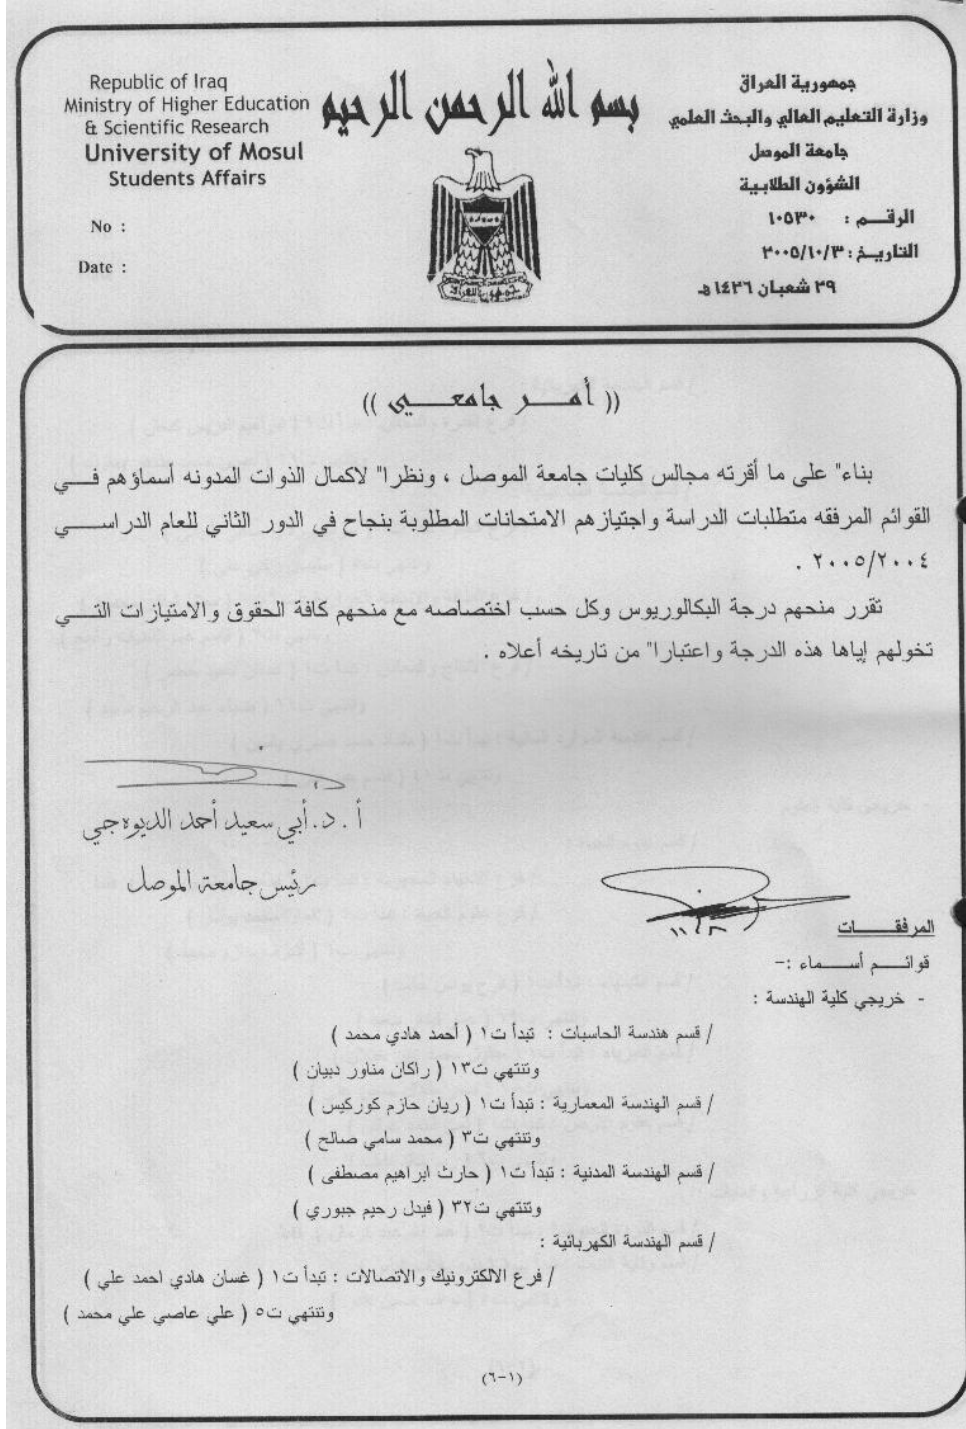 Republic of Iraq
Ministry of Higher Education
& Scientific Research
University of Mosul
Students Affairs
No :
Date :
بسم الله الرحمن الرحيم
جمهورية العراق
وزارة التعليم العالي والبحث العلمي
جامعة الموصل
الشؤون الطلابية
الرقم : ١٠٥٣٠
التاريخ : ٢٠٠٥/١٠/٣
٢٩ شعبان ١٤٢٦ هـ
(( أمر جامعي ))
بناء" على ما أقرته مجالس كليات جامعة الموصل ، ونظرا" لاكمال الذوات المدونه أسماؤهم في
القوائم المرفقه متطلبات الدراسة واجتيازهم الامتحانات المطلوبة بنجاح في الدور الثاني للعام الدراسي
٢٠٠٥/٢٠٠٤ .
تقرر منحهم درجة البكالوريوس وكل حسب اختصاصه مع منحهم كافة الحقوق والامتيازات التي
تخولهم إياها هذه الدرجة واعتبارا" من تاريخه أعلاه .
أ . د. أبي سعيد أحمد الديوه جي
رئيس جامعة الموصل
المرفقات
قوائم أسماء :-
- خريجي كلية الهندسة :
/ قسم هندسة الحاسبات : تبدأ ت١ ( أحمد هادي محمد )
وتنتهي ت١٣ ( راكان مناور دبيان )
/ قسم الهندسة المعمارية : تبدأ ت١ ( ريان حازم كوركيس )
وتنتهي ت٣ ( محمد سامي صالح )
/ قسم الهندسة المدنية : تبدأ ت١ ( حارث ابراهيم مصطفى )
وتنتهي ت٣٢ ( فيدل رحيم جبوري )
/ قسم الهندسة الكهربائية :
/ فرع الالكترونيك والاتصالات : تبدأ ت١ ( غسان هادي احمد علي )
وتنتهي ت٥ ( علي عاصي علي محمد )
(٦-١)